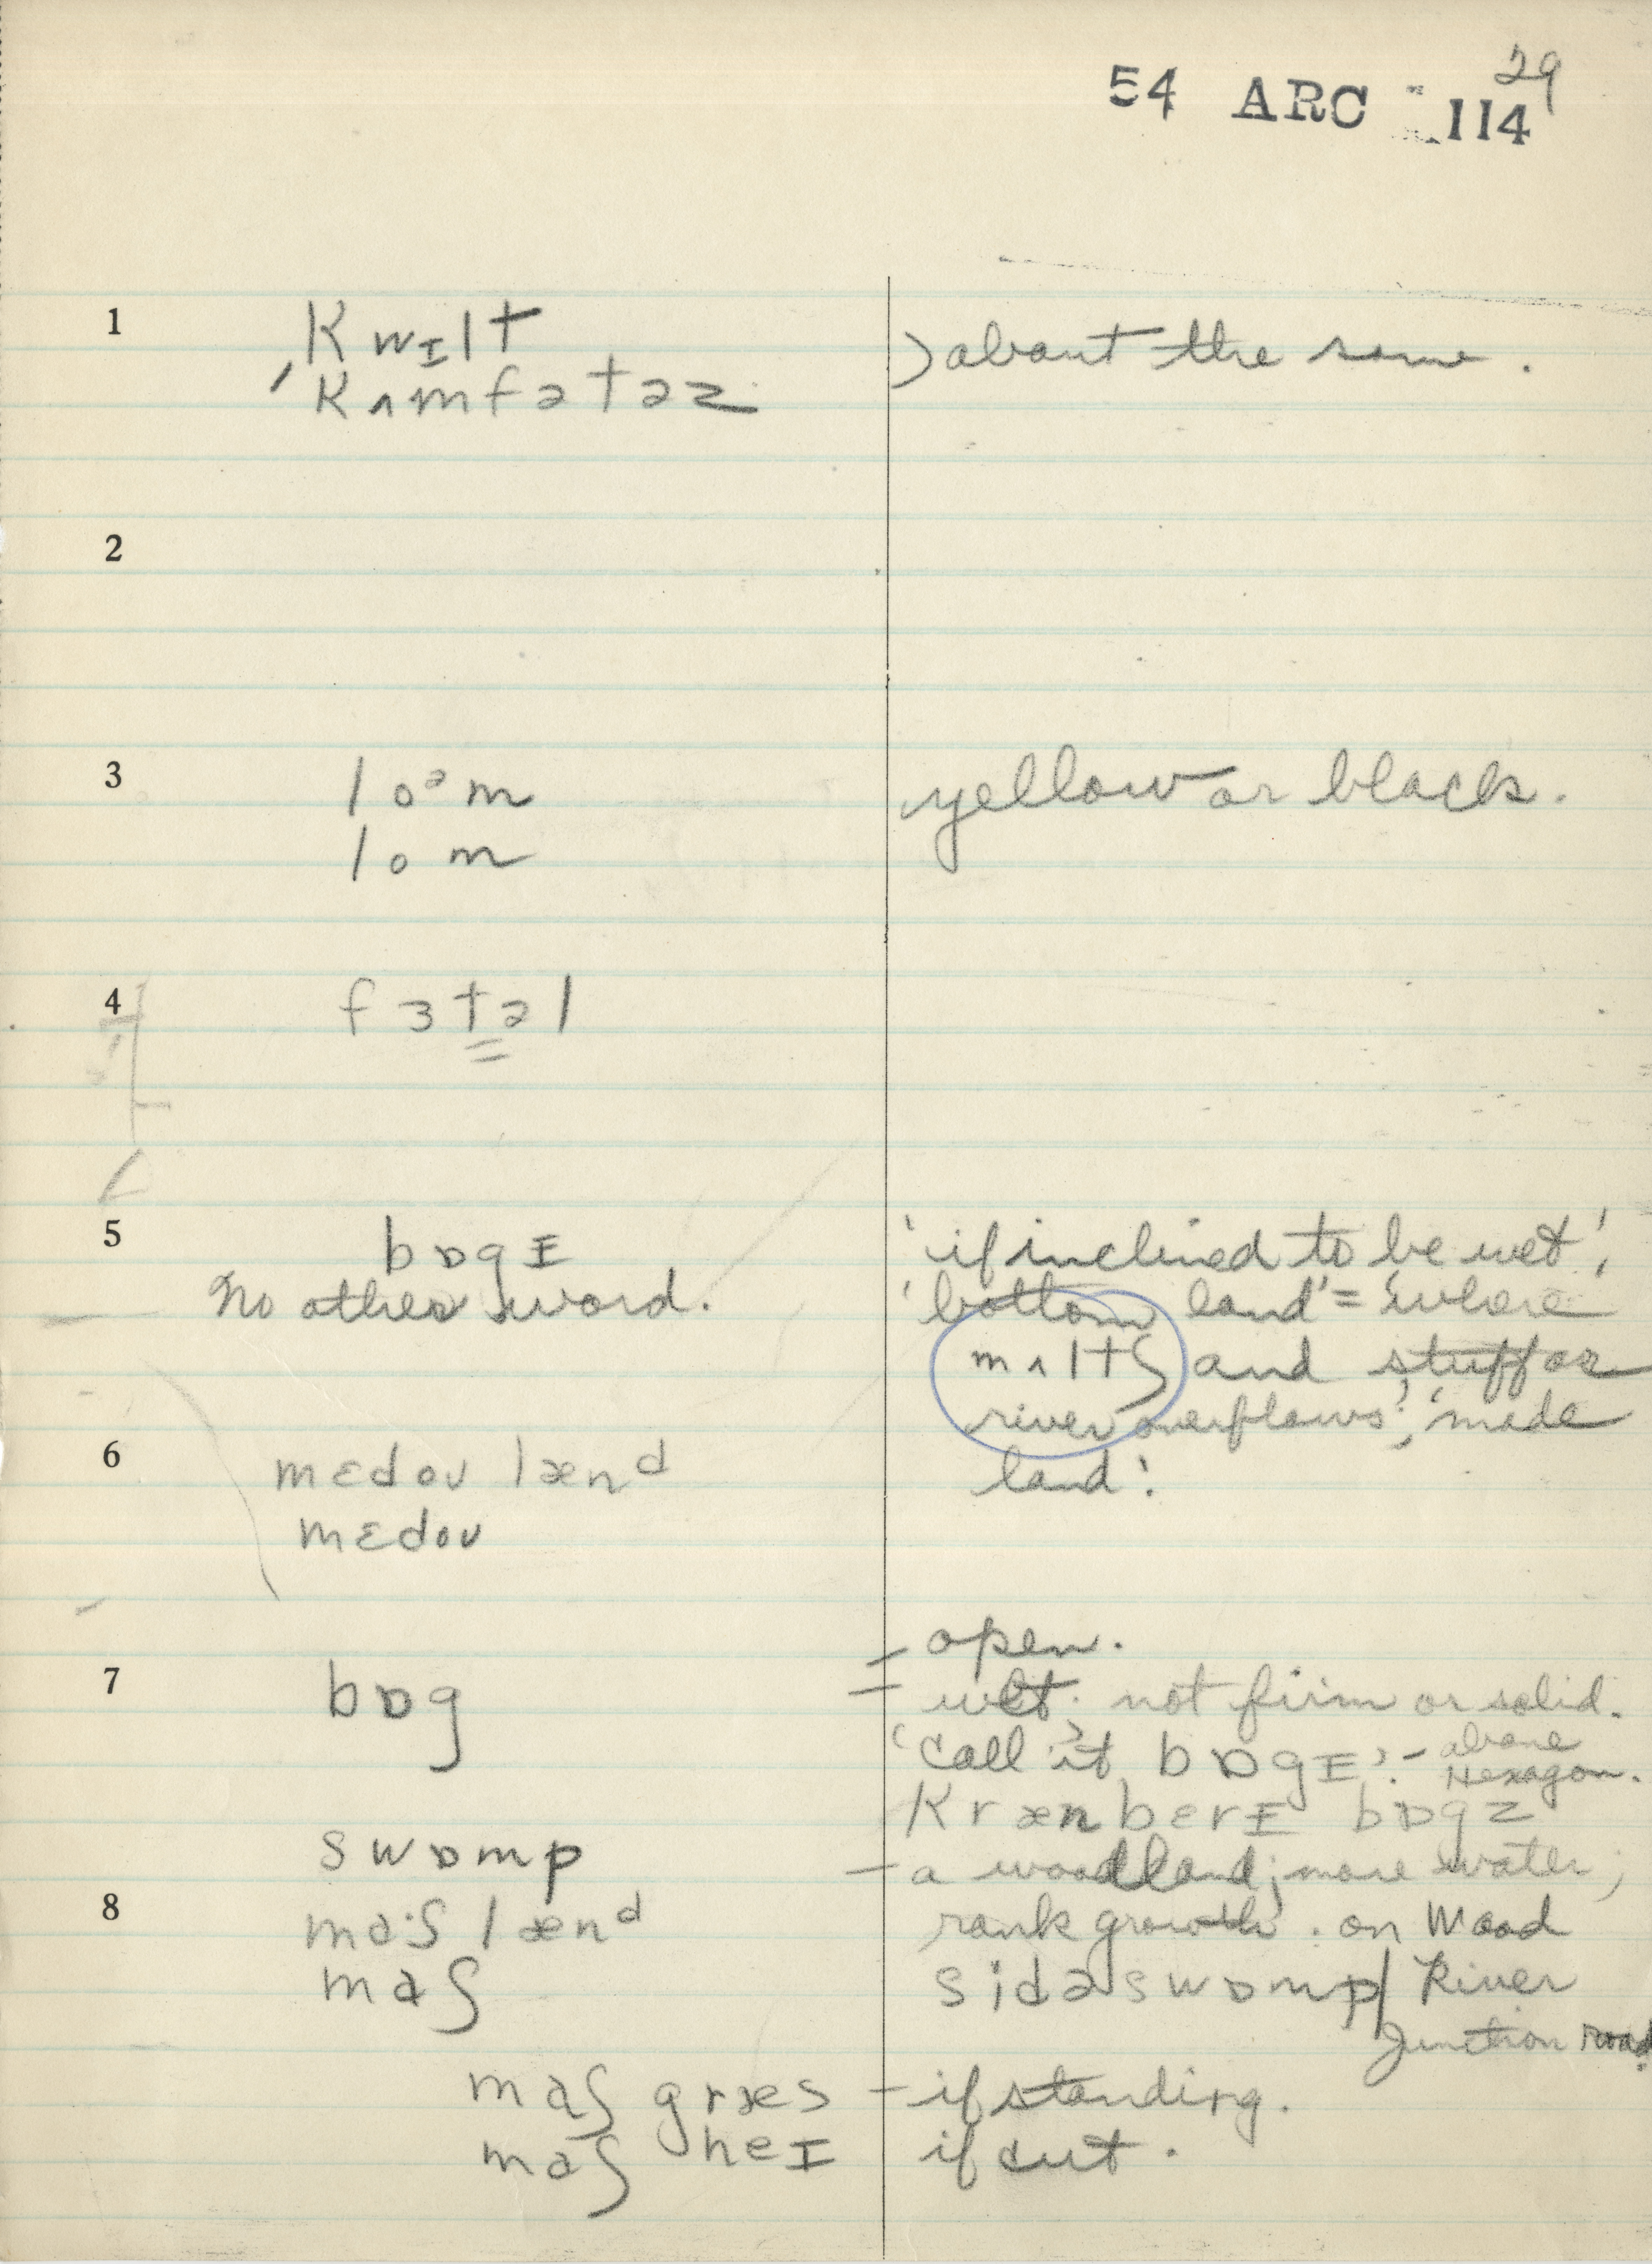 29
54 ARC 114
1 kwɪlt
ˈkʌmfətəz ) about the same.
2
3 loᵊm yellow or black.
lom
4 fɜtəl
5 bɒgɪ 'if inclined to be wet',
No other word. 'bottom land' = 'where
mʌltʃ and stuff or
river overflows', 'made
6 mɛdoʊ lænᵈ land'.
mɛdoʊ
= open.
7 bɒg wet. not firm or solid.
'call it bɒgɪ'. - above
Hexagon.
krænbɛrɪ bɒgz
swɒmp - a woodland; more water;
8 ma·ʃ lænᵈ rank growth. on Wood
maʃ sidəswɒmp / River
Junction road.
maʃ græs - if standing.
maʃ heɪ if cut.